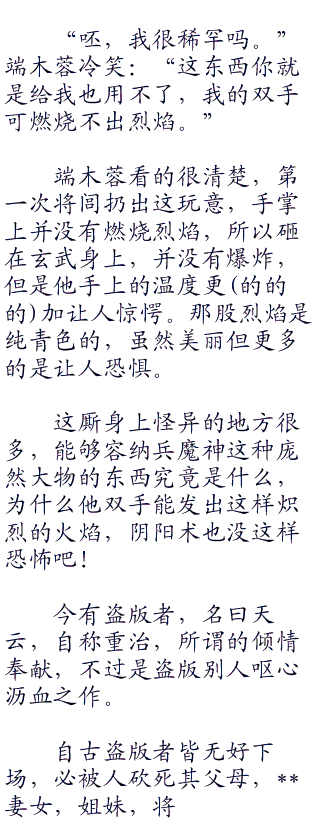 “呸，我很稀罕吗。”
端木蓉冷笑：“这东西你就
是给我也用不了，我的双手
可燃烧不出烈焰。”
端木蓉看的很清楚，第
一次将闾扔出这玩意，手掌
上并没有燃烧烈焰，所以砸
在玄武身上，并没有爆炸，
但是他手上的温度更(的的
的)加让人惊愕。那股烈焰是
纯青色的，虽然美丽但更多
的是让人恐惧。
这厮身上怪异的地方很
多，能够容纳兵魔神这种庞
然大物的东西究竟是什么，
为什么他双手能发出这样炽
烈的火焰，阴阳术也没这样
恐怖吧！
今有盗版者，名曰天
云，自称重治，所谓的倾情
奉献，不过是盗版别人呕心
沥血之作。
自古盗版者皆无好下
场，必被人砍死其父母，**
妻女，姐妹，将